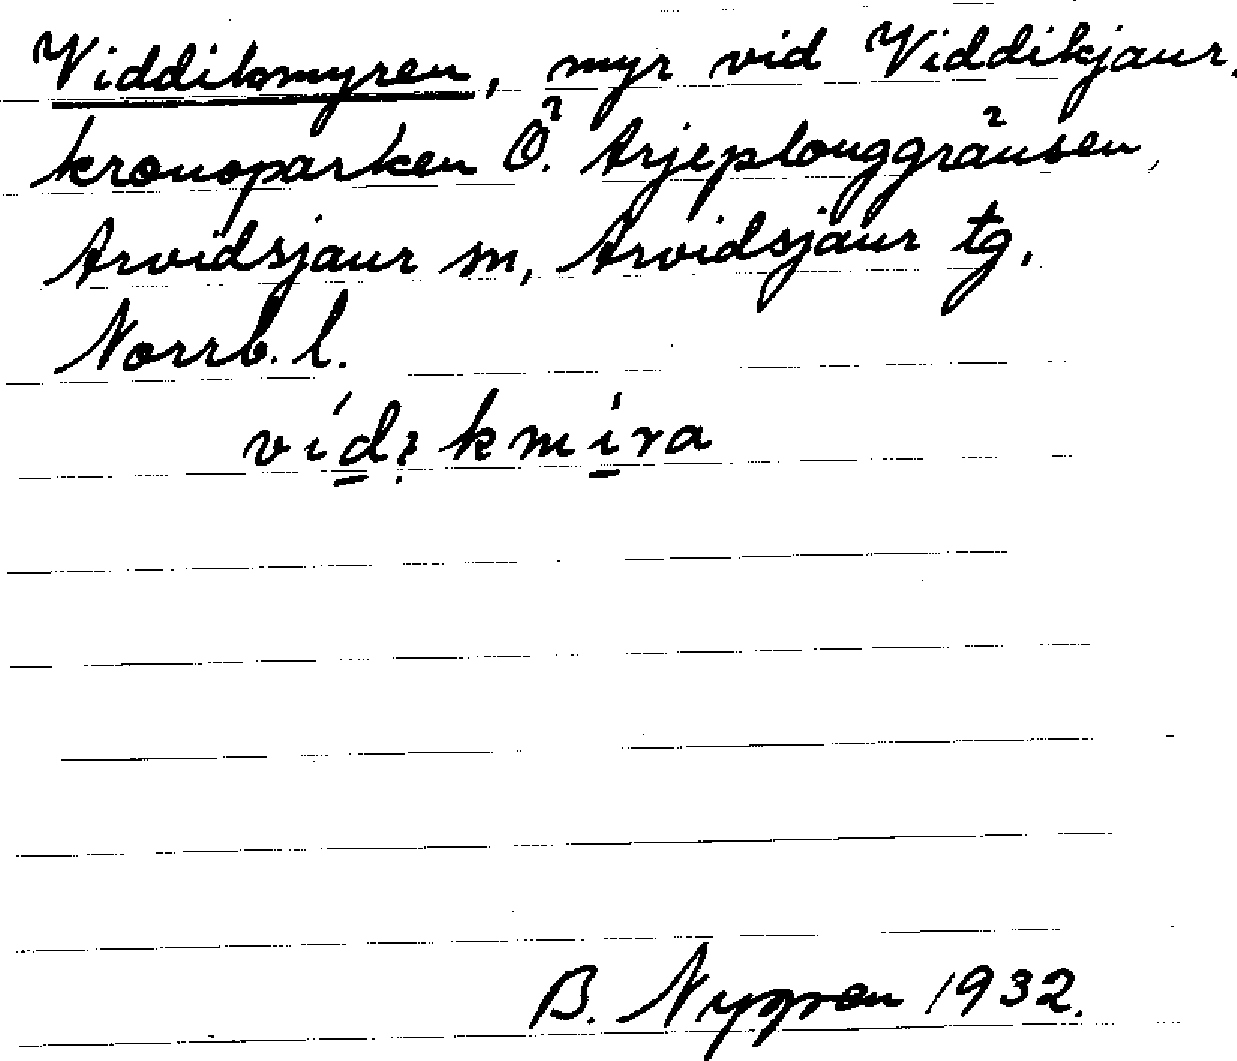 Viddikmyren, myr vid Viddikjaur,
kronoparken Ö. Arjeplouggränsen,
Arvidsjaur sn, Arvidsjaur tg,
Norrb. l.
B. Nygren 1932.